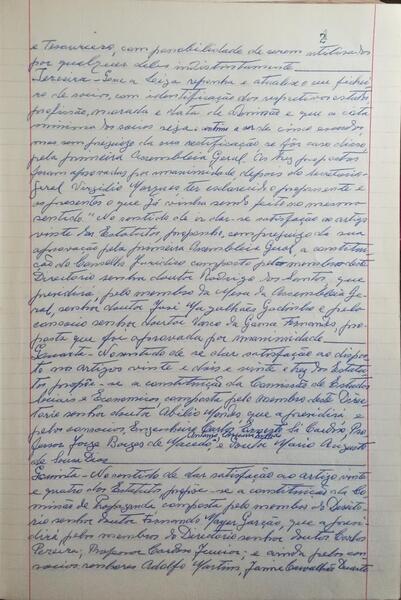 2
e Tesoureiro, com possibilidade de serem utilizados
por qualquer deles indistintamente
Terceira - Que a Liga reponha e atualize o seu fichei-
ro de socios, com identificação dos respectivos estado,
profissão, morada e data de admissão e que a cota
minima dos socios seja a de cinco escudos,
mas sem prejuizo da sua rectificação se fôr caso disso,
pela primeira Assembleia Geral. As tres propostas
foram aprovadas por unanimidade depois do Secretario
Geral Virgilio Marques ter esclarecido o proponente e
os presentes o que já vinha sendo feito no mesmo
sentido. "No sentido de se dar satisfação ao artigo
vinte dos Estatutos proponho, sem prejuizo da sua
aprovação pela primeira Assembleia Geral, a constitui-
ção do Conselho Juridico composto pelo membro deste
Directorio senhor doutor Rodrigo dos Santos, que
presidirá, pelo membro da Mesa da Assembleia Ge-
ral, senhor doutor José Magalhães Godinho e pelo
consocio senhor doutor Vasco da Gama Fernandes, pro-
posta que foi aprovada por unanimidade
Quarta - No sentido de se dar satisfação ao dispos-
to nos artigos vinte e dois e vinte e tres dos Estatu-
tos propõe-se a constituição da Comissão de Estudos
Sociais e Economicos composta pelo membro deste Direc-
torio senhor doutor Abilio Mendes que a presidirá e
pelos consocios, Engenheiro Carlos Cardoso, Pro-
fessor Jorge Borges de Macedo, e Doutor Mario Augusto
de Sousa Dias
Quinta - No sentido de dar satisfação ao artigo vinte
e quatro dos Estatutos propõe-se a constituição da Co-
missão de Propaganda composta pelo membro do Directo-
rio senhor doutor Fernando Mayer Garção, que a presi-
dirá pelos membros do Directorio senhor doutor Carlos
Pereira; Professor Cardoso Junior; e ainda pelos con-
socios senhores Adolfo Martins, Jaime Carvalhão Duarte